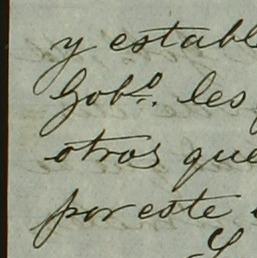 y establ
Gobº. les
otros que
por este